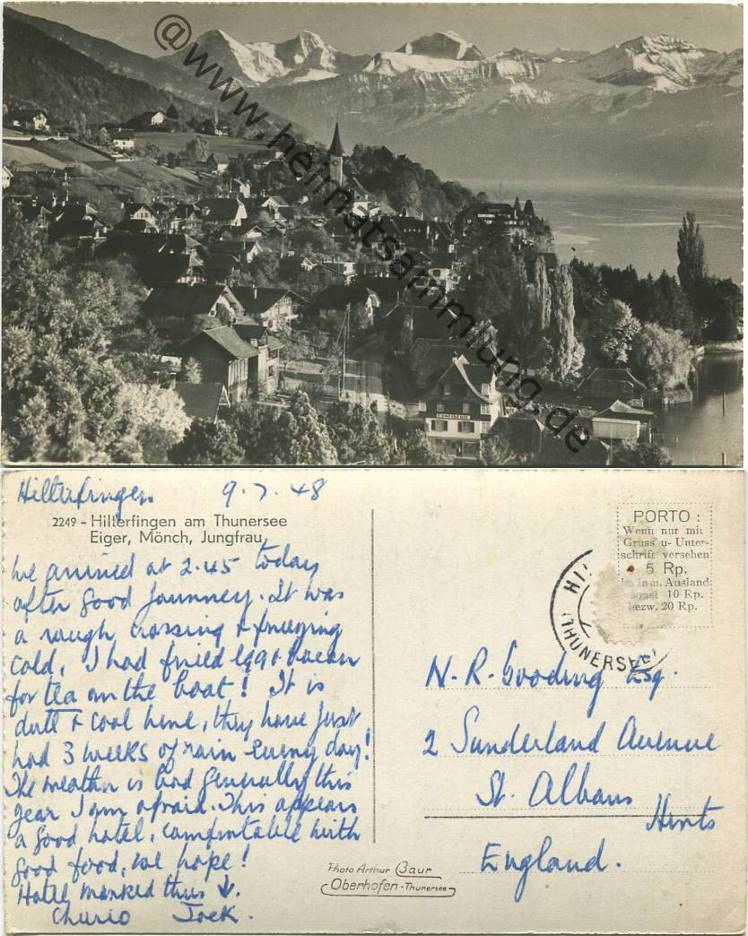 @www.heimatsammlung.de
Hilterfingen 9.7.48
2249 - Hilterfingen am Thunersee
Eiger, Mönch, Jungfrau
We arrived at 2.45 today
after good journey. It was
a rough crossing & freezing
cold. I had fried egg & bacon
for tea on the boat! It is
dull & cool here, they have just
had 3 weeks of rain every day!
The weather is bad generally this
year I am afraid. This appears
a good hotel, comfortable with
good food, we hope!
Hotel marked thus ↓.
Cheerio Jack.
PORTO :
Wenn nur mit
Gruss u- Unter-
schrift versehen
5 Rp.
Ausland
10 Rp.
bezw. 20 Rp.
HI
(THUNERSEE)
N. R. Gooding Esq.
2 Sunderland Avenue
St. Albans
Herts
England.
Photo Arthur Baur
Oberhofen - Thunersee